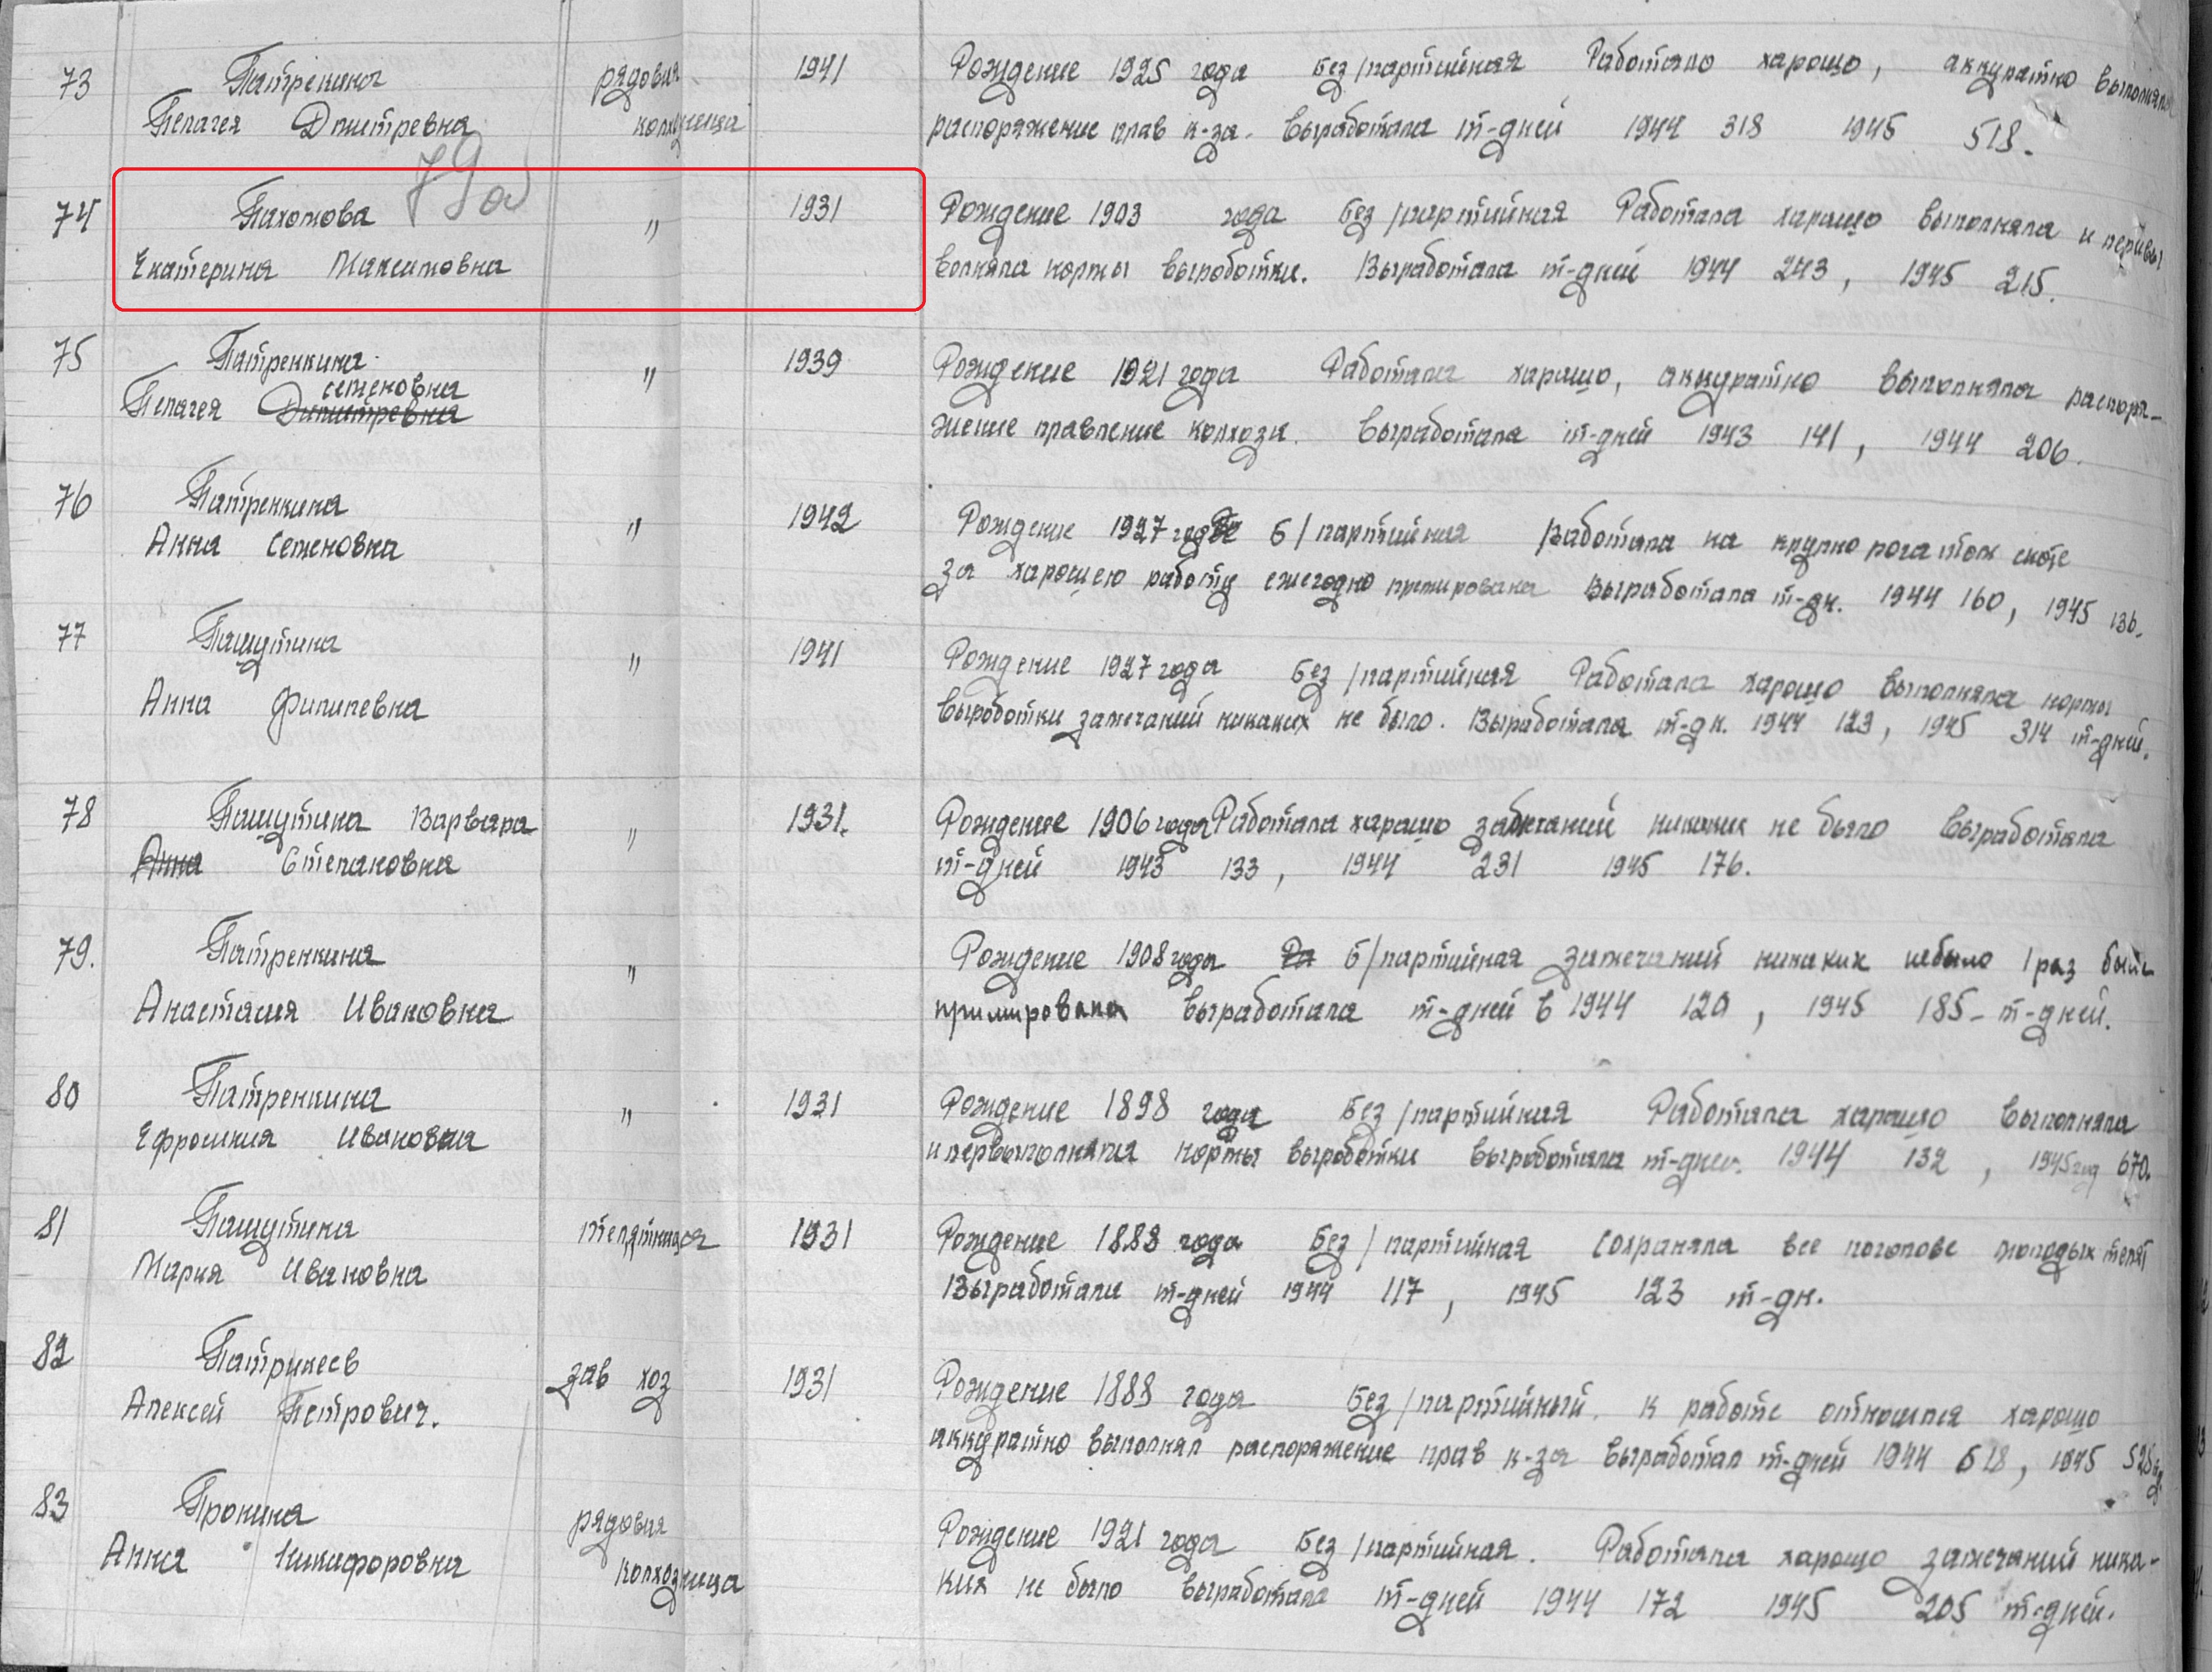 73 Патренкина рядовая 1941 Рождение 1925 года Без/партийная Работало харошо, аккуратно выполняла
Пелагея Дмитревна колхозница распоряжение прав к-за. Выработала т-дней 1944 318 1945 518.
79а
74 Пахомова " 1931 Рождение 1903 года Без/партийная Работала харашо выполняла и перевы
Екатерина Максимовна волняла нормы выработки. Выработала т-дней 1944 243, 1945 215.
75 Патренкина " 1939 Рождение 1921 года Работала харашо, аккуратно выполняла распоря-
семеновна
Пелагея Дмитревна жение правление колхоза. Выработала т-дней 1943 141, 1944 206.
76 Патренкина " 1942 Рождение 1927 года Б/партийная работала на крупно рогатом скоте
Анна Семеновна за харошею работу ежегодно премирована Выработала т-дн. 1944 160, 1945 136.
77 Пашутина " 1941 Рождение 1927 года Без/партийная Работала харошо выполняла нормы
Анна Филипевна выработки замечаний никаких не было. Выработала т-дн. 1944 123, 1945 314 т-дней.
78 Пашутина Варвара " 1931. Рождение 1906 года Работала харашо замечаний никаких не было Выработала
Анна Степановна т-дней 1943 133, 1944 231 1945 176.
79. Патренкина " Рождение 1908 года Ра Б/партийная замечаний никаких небыло 1 раз была
Анастасия Ивановна примирована выработала т-дней в 1944 120, 1945 185- т-дней.
80 Патренкина " 1931 Рождение 1898 года Без/партийная Работала харашо выполняла
Ефросиния Ивановна и первыполняла нормы выработки выработала т-дней. 1944 132, 1945 год 670.
81 Пашутина телятница 1931 Рождение 1888 года Без/партийная Сохраняла все поголове молодых телят
Мария Ивановна Выработала т-дней 1944 117, 1945 123 т-дн.
82 Патрикеев зав хоз 1931 Рождение 1888 года Без/партийный. К работе относился харошо
Алексей Петрович. аккуратно выполнял распоряжение прав к-за выработал т-дней 1944 618, 1945
83 Пронина рядовая Рождение 1921 года Без/партийная. Работала харошо замечаний ника-
Анна Никифоровна колхозница ких не было выработала т-дней 1944 172 1945 205 т-дней.